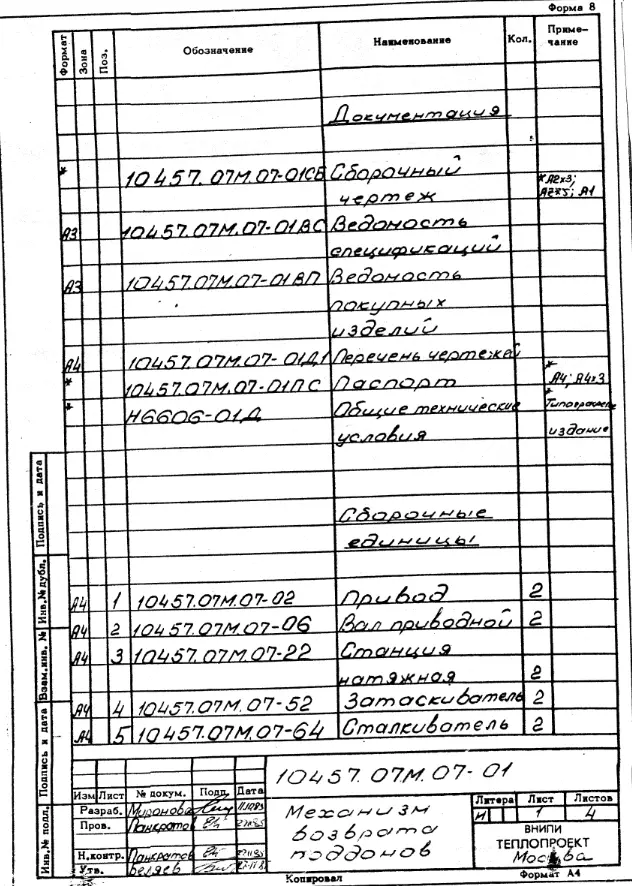 Форма 8
Формат Зона Поз. Обозначение Наименование Кол. Приме-чание
Документация
* 10457.07М.07-01СБ Сборочный *А2х3;
чертеж А2х5; А1
А3 10457.07М.07-01ВС Ведомость
спецификаций
А3 10457.07М.07-01ВП Ведомость
покупных
изделий
А4 10457.07М.07-01Д1 Перечень чертежей *
* 10457.07М.07-01ПС Паспорт А4; А4х3
* Н6606-01Д Общие технические *
условия издание
Сборочные
единицы
А4 1 10457.07М.07-02 Привод 2
А4 2 10457.07М.07-06 Вал приводной 2
А4 3 10457.07М.07-22 Станция
натяжная 2
А4 4 10457.07М.07-52 Затаскиватель 2
А4 5 10457.07М.07-64 Сталкиватель 2
Подпись и дата
Инв.№ дубл.
Взам.инв. №
Подпись и дата
Инв.№ подл.
10457.07М.07-01
Изм Лист № докум. Подп. Дата
Разраб. Миронова
Пров. Панкратов
Н.контр. Панкратов
Утв. Беляев
Механизм
возврата
поддонов
Литера Лист Листов
И 1 4
ВНИПИ
ТЕПЛОПРОЕКТ
Москва
Копировал Формат А4